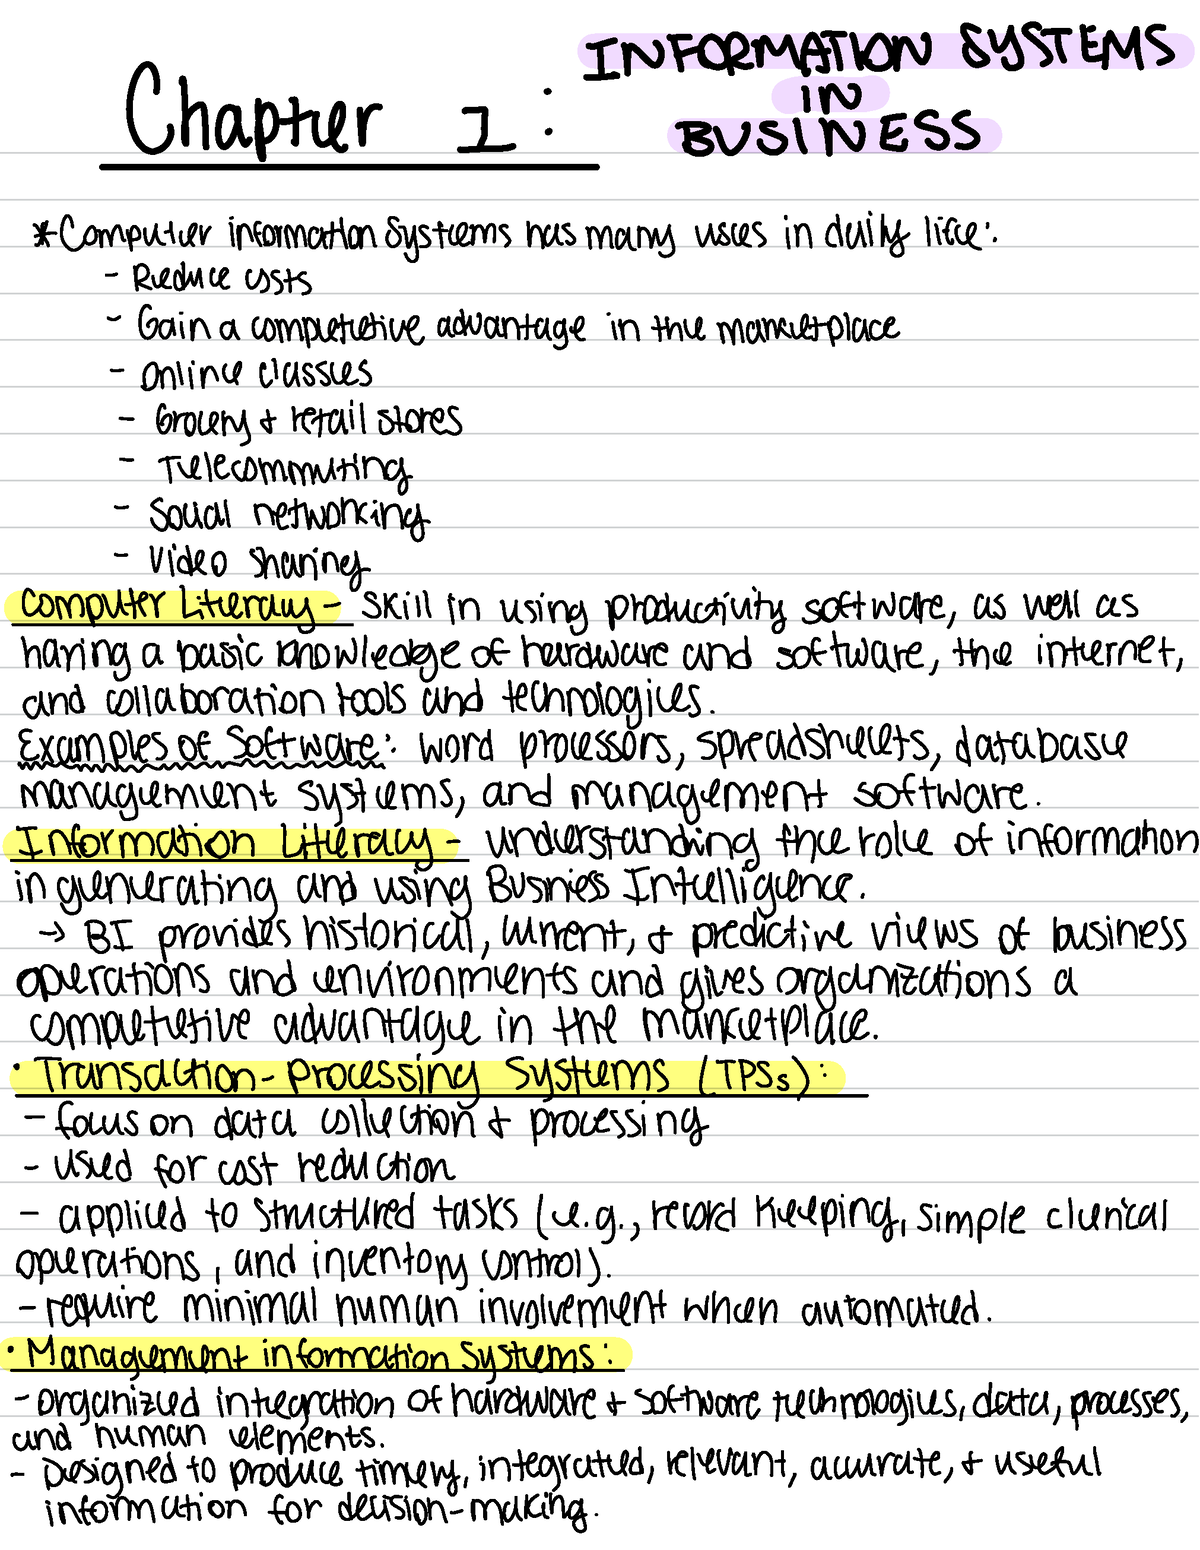 Chapter 1: INFORMATION SYSTEMS
IN
BUSINESS
*Computer information Systems has many uses in daily life:
- Reduce costs
- Gain a competetive advantage in the marketplace
- Online classes
- Grocery & retail stores
- Telecommuting
- Social networking
- Video sharing
Computer Literacy - skill in using productivity software, as well as
having a basic knowledge of hardware and software, the internet,
and collaboration tools and technologies.
Examples of Software: word processors, spreadsheets, database
management systems, and management software.
Information Literacy - understanding the role of information
in generating and using Busniess Intelligence.
→ BI provides historical, current, & predictive views of business
operations and environments and gives organizations a
competetive advantage in the marketplace.
· Transaction-processing Systems (TPSs):
- focus on data collection & processing
- used for cost reduction
- applied to structured tasks (e.g., record keeping, simple clerical
operations, and inventory control).
- require minimal human involvement when automated.
· Management information Systems:
- organized integration of hardware & software technologies, data, processes,
and human elements.
- Designed to produce timely, integrated, relevant, accurate, & useful
information for decision-making.